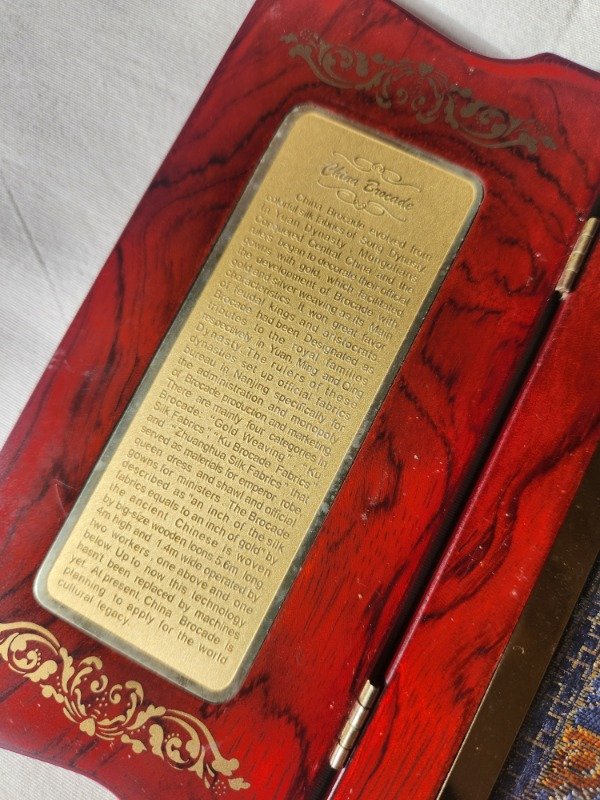 China Brocade
China Brocade evolved from
colorful silk fabrics of Song Dynasty.
In Yuan Dynasty, Mongolians
conquered Central China and the
rulers began to decorate their official
gowns with gold, which facilitated
the development of Brocade with
gold and silver weaving as its Main
characteristics. It won great favor
of feudal kings and aristocrats.
Brocade had been Designated as
tributes to the royal families
especively in Yuan, Ming, and Qing
Dynasty. The rulers of these
dynasties set up official fabrics
bureau in Nanjing specifically for
the administration and monopoly
of Brocade production and marketing.
There are mainly four categories in
Brocade: "Gold Weaving", "Ku
Silk Fabrics", "Ku Brocade Fabrics"
and "Zhuanghua Silk Fabrics" that
served as materials for emperor robe,
queen dress and shawl and official
gowns for ministers. The Brocade
described as "an inch of the silk
fabrics equals to an inch of gold" by
the ancient Chinese is woven
by big-size wooden looms 5.6m long,
4m high and 1.4m wide operated by
two workers, one above and one
below. Up to now this technology
hasn't been replaced by machines
yet. At present, China Brocade is
planning to apply for the world
cultural legacy.